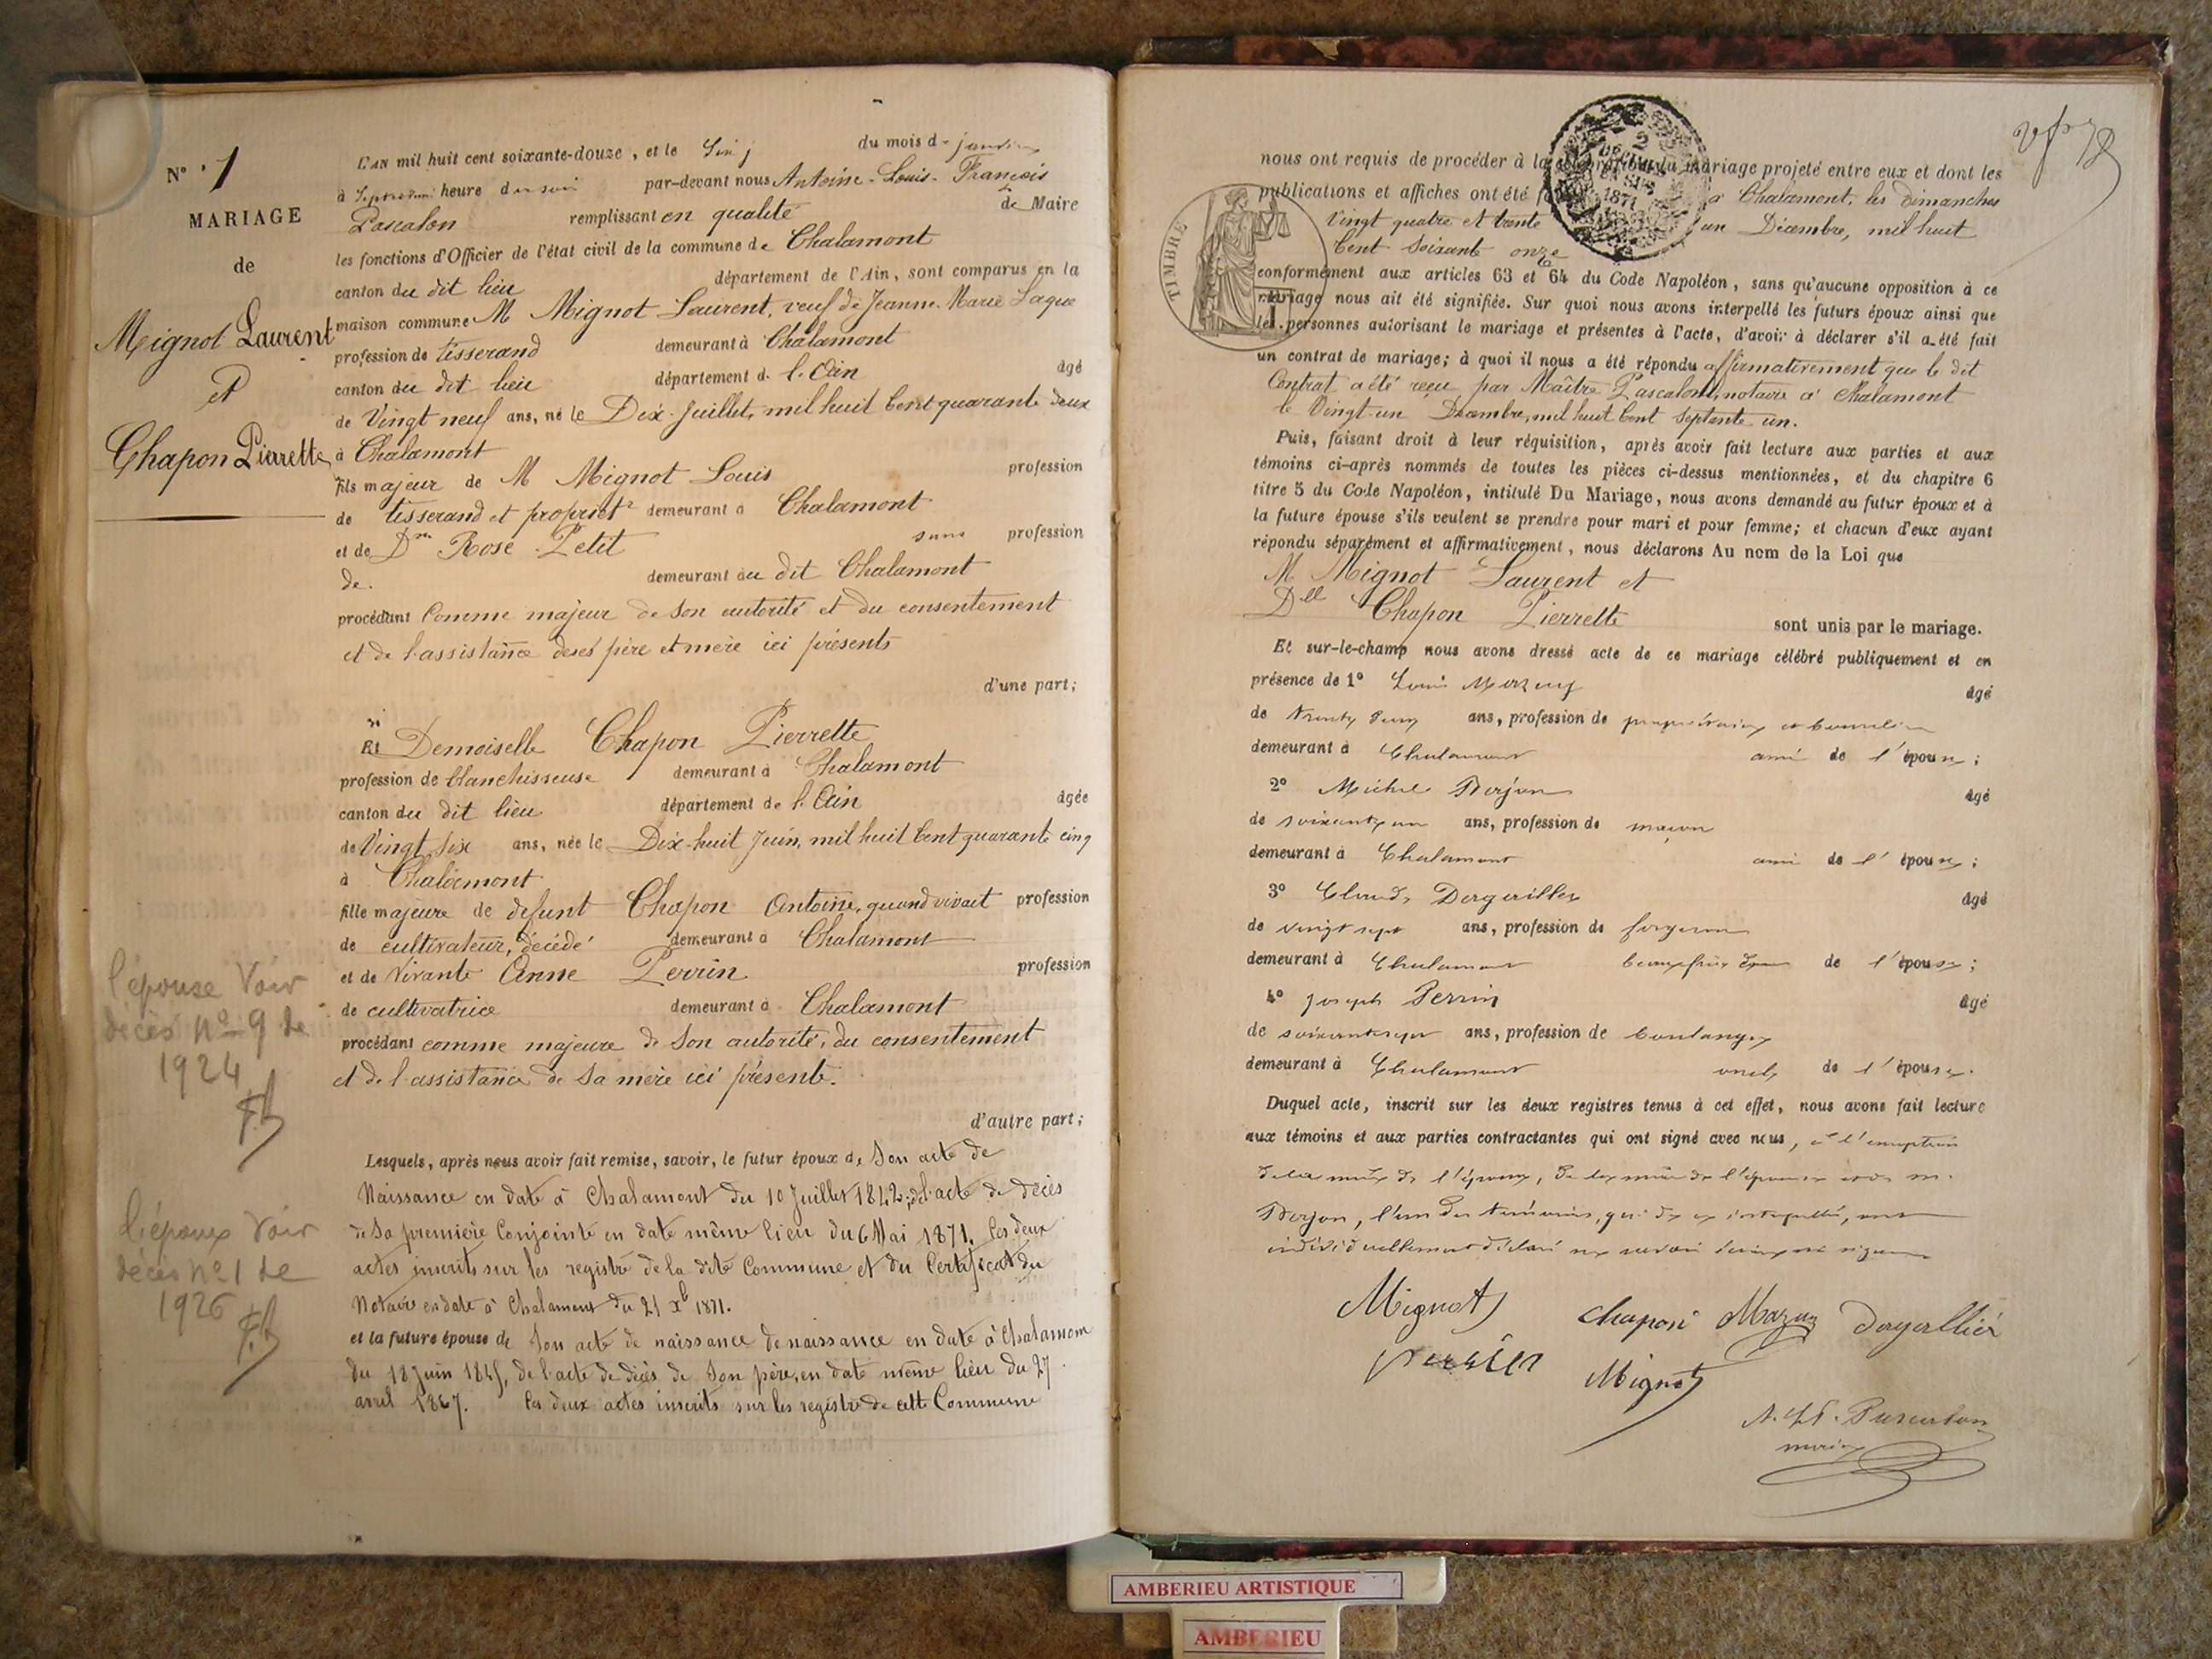 N° 1
MARIAGE
de
Mignot Laurent
et
Chapon Pierrette
L'an mil huit cent soixante-douze, et le du mois d janvier
à heure du soir par-devant nous Antoine-Louis-François
Pascalon remplissant en qualité de Maire
les fonctions d'Officier de l'état civil de la commune de Chalamont
canton du dit lieu département de l'Ain, sont comparus en la
maison commune M Mignot Laurent, veuf de Jeanne-Marie
profession de tisserand demeurant à Chalamont
canton du dit lieu département d. l'Ain âgé
de Vingt neuf ans, né le Dix Juillet, mil huit Cent quarante deux
à Chalamont
fils majeur de M Mignot Louis profession
de tisserand et propriét demeurant à Chalamont
et de Dme Rose Petit sans profession
de. demeurant au dit Chalamont
procédant Comme majeur de son autorité et du consentement
et de l'assistance de ses père et mère ici présents
d'une part;
Et Demoiselle Chapon Pierrette
profession de blanchisseuse demeurant à Chalamont
canton du dit lieu département de l'Ain âgée
de Vingt six ans, née le Dix-huit Juin, mil huit Cent quarante cinq
à Chalamont
fille majeure de défunt Chapon Antoine, quand vivait profession
de cultivateur, décédé demeurant à Chalamont
et de Vivante Anne Perrin profession
de cultivatrice demeurant à Chalamont
procédant comme majeure de Son autorité, du consentement
et de l'assistance de Sa mère ici présente.
d'autre part;
Lesquels, après nous avoir fait remise, savoir, le futur époux de Son acte de
Naissance en date à Chalamont du 10 Juillet 1842, de l'acte de décès
de Sa première Conjointe en date même lieu du 6 Mai 1871. les deux
actes inscrits sur les registre de la dite Commune et du Certificat du
Notaire en date à Chalamont du 21 Xb 1871.
et la future épouse de Son acte de naissance de naissance en date à Chalamon
du 18 Juin 1845, de l'acte de décès de Son père, en date même lieu du 27
avril 1867. les deux actes inscrits sur les registre de cette Commune
l'épouse Voir
décès n° 9 de
1924
l'époux Voir
décès n° 1 de
1926
nous ont requis de procéder à la célébration du mariage projeté entre eux et dont les
publications et affiches ont été à Chalamont, les dimanches
Vingt quatre et trente un Décembre, mil huit
Cent Soixante onze
conformément aux articles 63 et 64 du Code Napoléon, sans qu'aucune opposition à ce
mariage nous ait été signifiée. Sur quoi nous avons interpellé les futurs époux ainsi que
les personnes autorisant le mariage et présentes à l'acte, d'avoir à déclarer s'il a été fait
un contrat de mariage; à quoi il nous a été répondu affirmativement que le dit
Contrat a été reçu par Maître Pascalon, notaire à Chalamont
le Vingt-un Décembre, mil huit Cent Septente un.
Puis, faisant droit à leur réquisition, après avoir fait lecture aux parties et aux
témoins ci-après nommés de toutes les pièces ci-dessus mentionnées, et du chapitre 6
titre 5 du Code Napoléon, intitulé Du Mariage, nous avons demandé au futur époux et à
la future épouse s'ils veulent se prendre pour mari et pour femme; et chacun d'eux ayant
répondu séparément et affirmativement, nous déclarons Au nom de la Loi que
M Mignot Laurent et
Dlle Chapon Pierrette sont unis par le mariage.
Et sur-le-champ nous avons dressé acte de ce mariage célébré publiquement et en
présence de 1° Louis Mazuy âgé
de trente deux ans, profession de propriétaire et
demeurant à Chalamont ami de l'époux;
2° Michel Berjon âgé
de soixante un ans, profession de maçon
demeurant à Chalamont ami de l'époux;
3° Claude âgé
de vingt sept ans, profession de forgeron
demeurant à Chalamont beau frère de l'épouse;
4° Joseph Perrin âgé
de soixante sept ans, profession de boulanger
demeurant à Chalamont oncle de l'épouse.
Duquel acte, inscrit sur les deux registres tenus à cet effet, nous avons fait lecture
aux témoins et aux parties contractantes qui ont signé avec nous, à l'exception
de la mère de l'époux, de la mère de l'épouse et de m.
Berjon, l'un des témoins, qui de ce interpellé, ont
individuellement déclaré ne savoir écrire ni signer
Mignot
Chapon Mazuy
Perrin Mignot
Pascalon
maire
TIMBRE
2
1871
AMBERIEU ARTISTIQUE
AMBERIEU